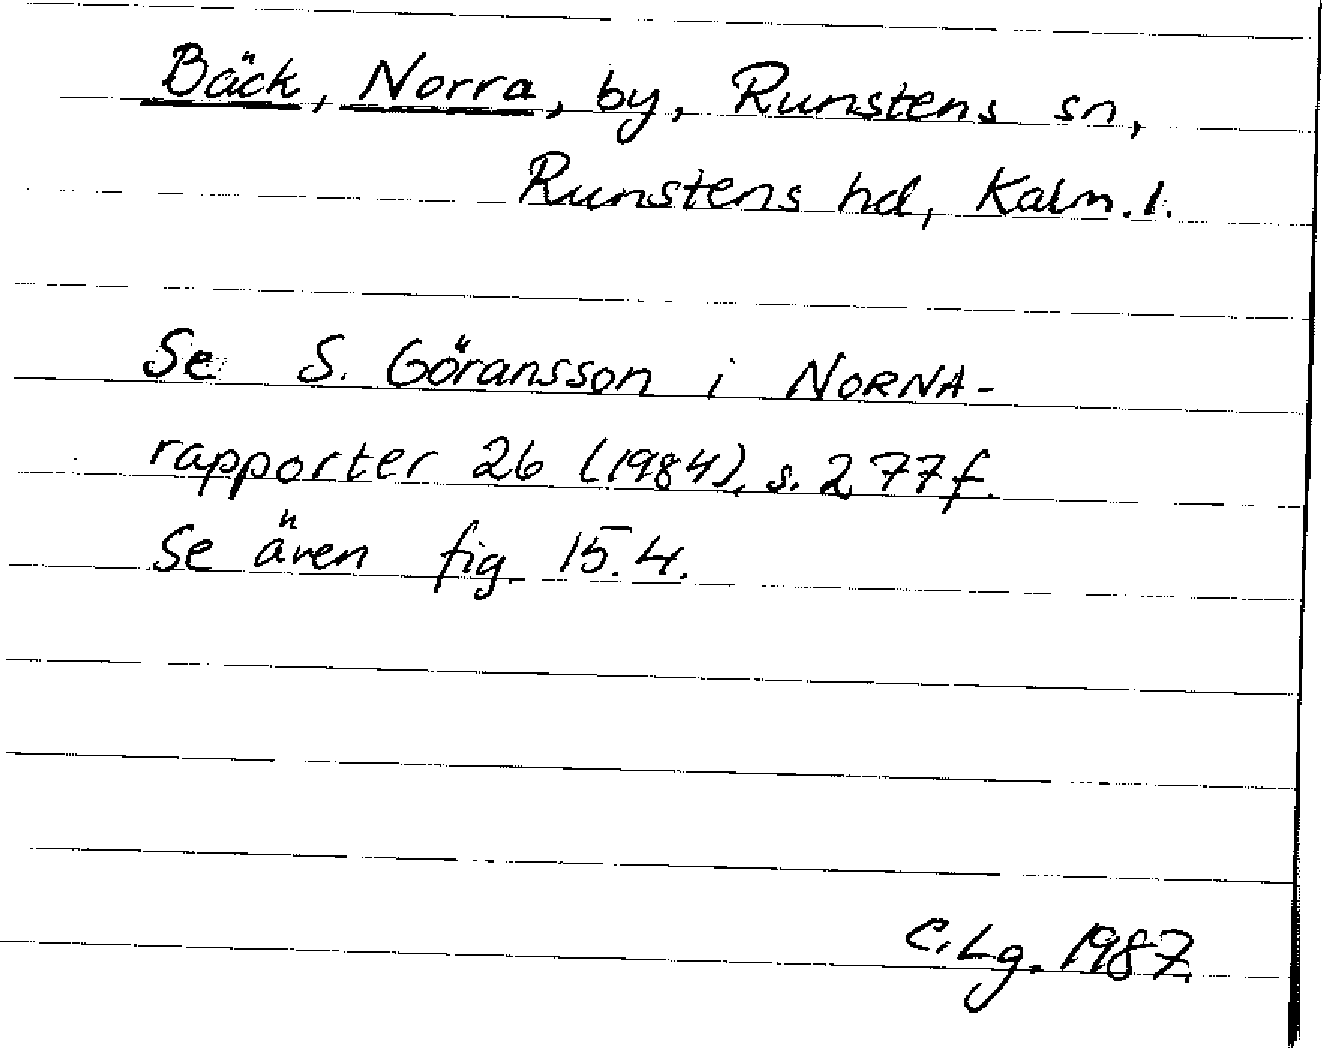 Bäck, Norra, by, Runstens sn,
Runstens hd, Kalm. l.
Se S. Göransson i NORNA-
rapporter 26 (1984), s. 277f.
Se även fig. 15.4.
C.Lg. 1987